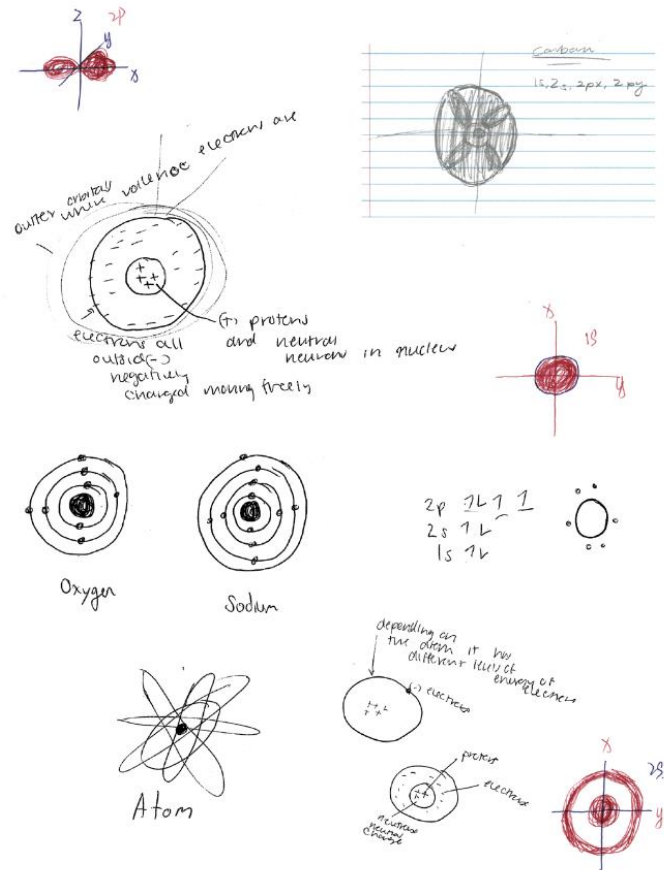 Z
2p
y
x
carbon
1s, 2s, 2px, 2py
outter orbitals
when vallence electrons are
(+) protens
and neutral
neutrons in nucleus
electrons all
outside (-)
negatively
charged moving freely
x
1S
y
Oxygen
Sodium
2p 1L 1 1
2s 1L
1s 1L
Atom
depending on
the atom it has
different levels of
energy of
electrons
(-) electrons
proten
electrons
neutrons
neutral
charge
x
2S
y